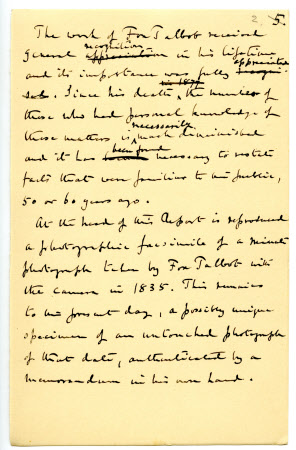 2. 5.
The work of Fox Talbot received
recognition
general appreciation in his lifetime
appreciated
and its importance was fully recogni-
sed. Since his death, in 1877 the number of
those who had personal knowledge of
necessarily
these matters is much diminished
been found
and it has become necessary to restate
facts that were familiar to the public,
50 or 60 years ago.
At the head of this Report is reproduced
a photographic facsimile of a minute
photograph taken by Fox Talbot with
the camera in 1835. This remains
to the present day, a possibly unique
specimen of an untouched photograph
of that date, authenticated by a
memorandum in his own hand.